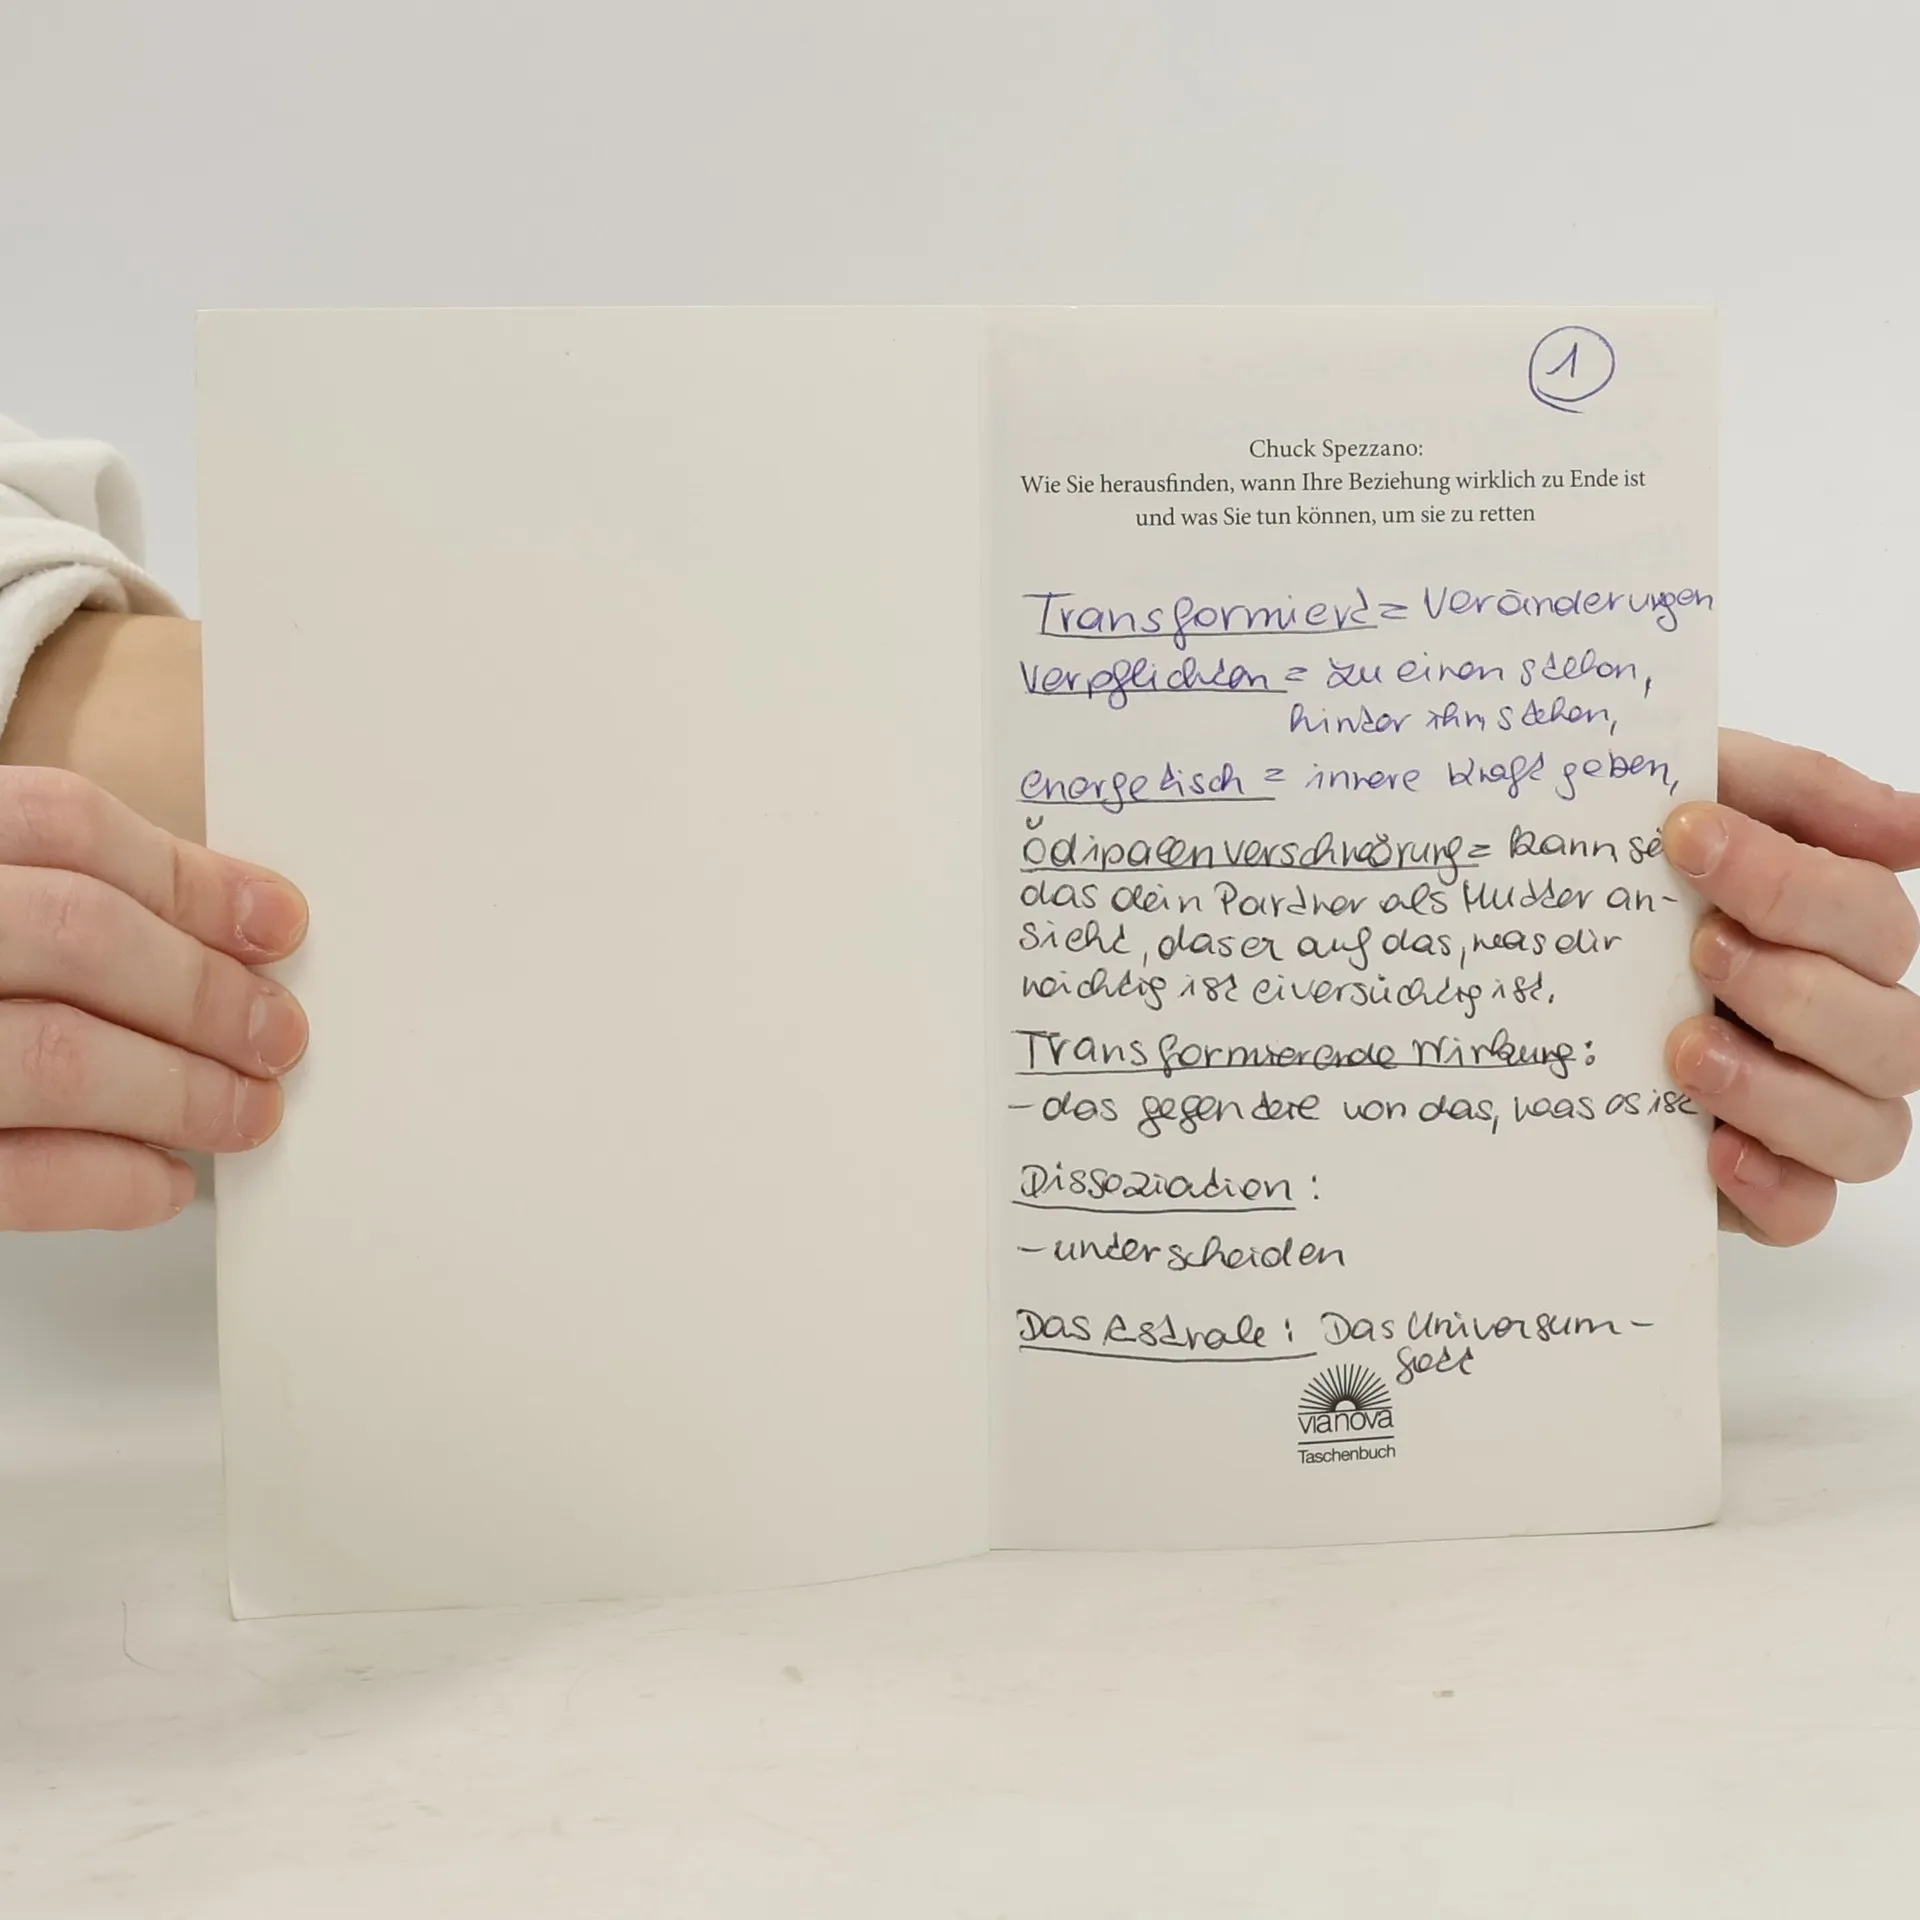 1
Chuck Spezzano:
Wie Sie herausfinden, wann Ihre Beziehung wirklich zu Ende ist
und was Sie tun können, um sie zu retten
Transformiert = Veränderungen
Verpflichten = zu einen stehen,
hinter ihm stehen,
energetisch = innere Kraft geben,
Ödipalenverschwörung = kann se
das dein Partner als Mutter an-
sieht, das er auf das, was dir
wichtig ist eiversüchtig ist.
Transformierende Wirkung:
- das gegenteil von das, was es ist
Dissoziation:
- unterscheiden
Das Astrale: Das Universum -
Gott
vianova
Taschenbuch